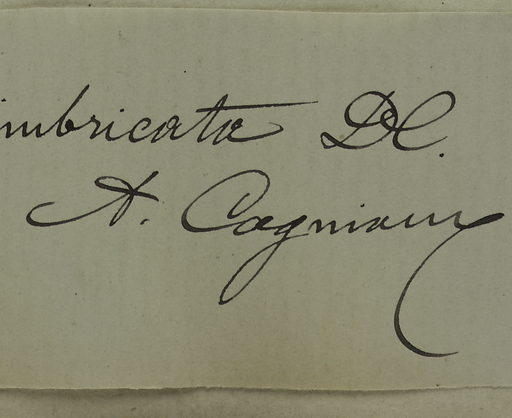 imbricata DC.
A. Cogniaux